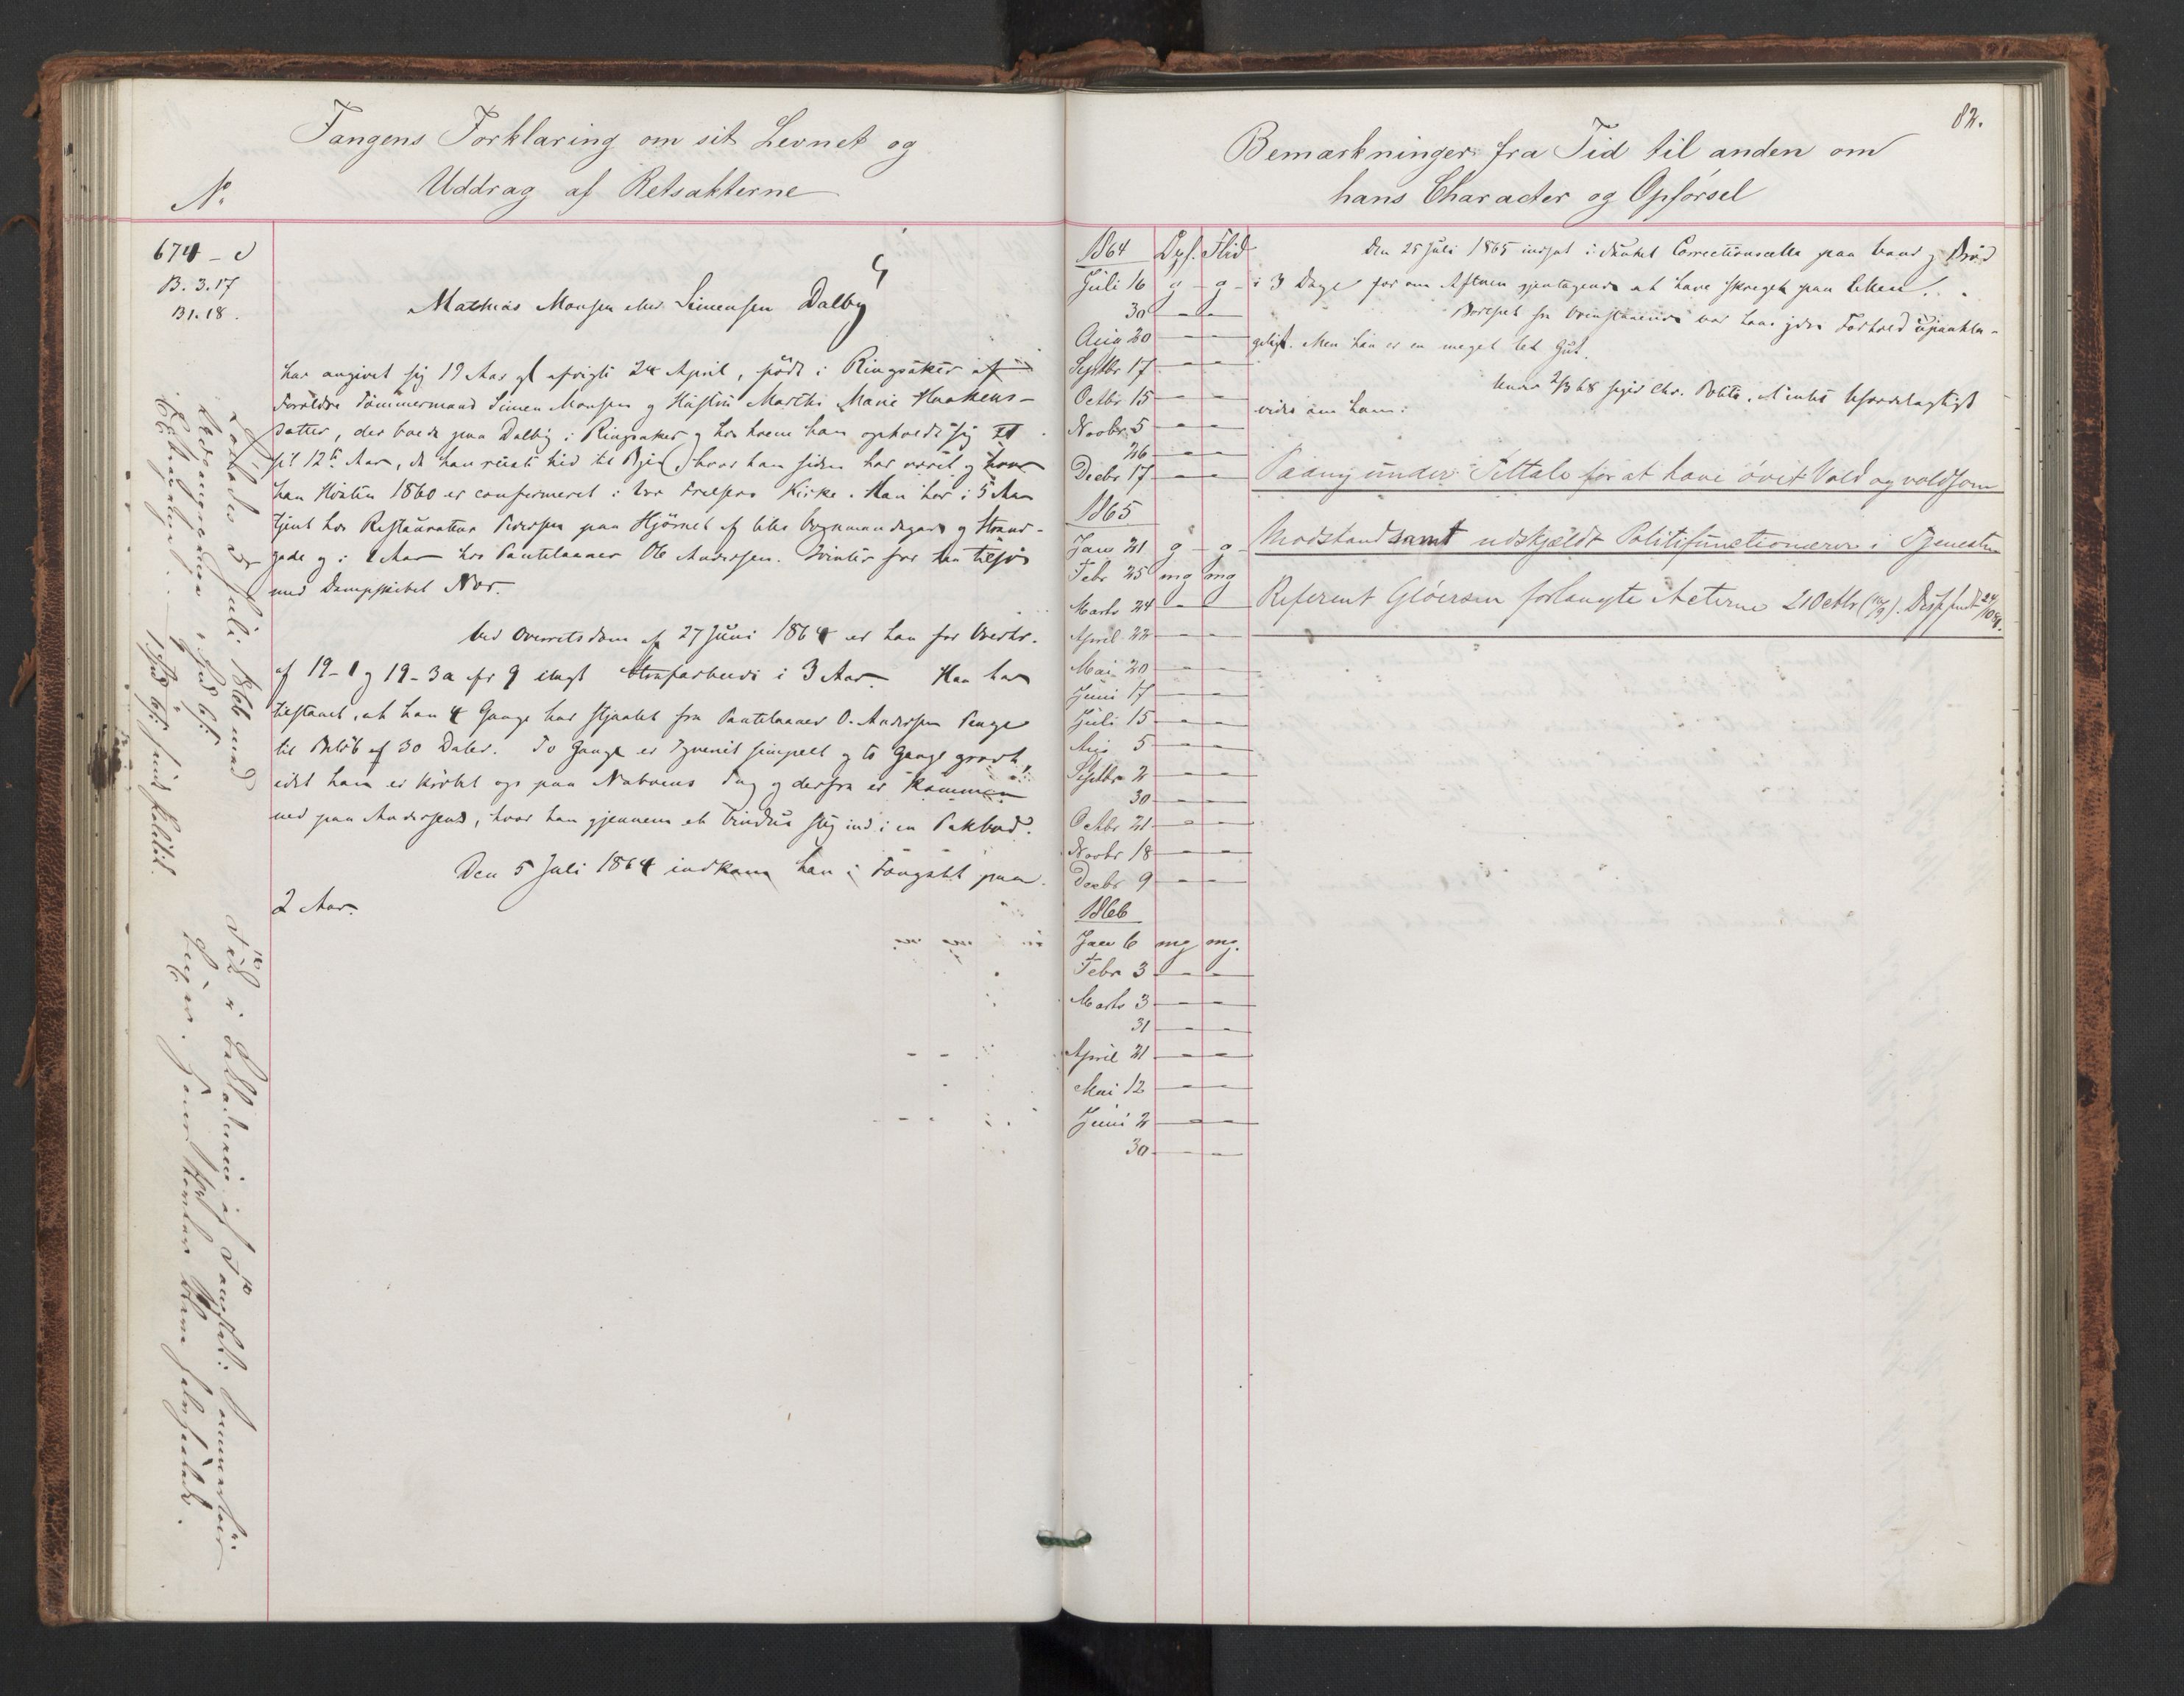 Fangens Forklaring om sit Levnet og
Uddrag af Retsakterne
No
674 - d
B. 3.17
B1.18.
Mathias Monsen eller Simensen Dalby
har angivet sig 19 Aar gl afvigte 24 April, født i Ringsaker af
Forældre Tømmermand Simen Monsen og Hustru Marthe Marie Haakens-
datter, der boede paa Dalby i Ringsaker og hos hvem han opholdt sig
til 12te Aar, da han reiste hid til Byen, hvor han siden har været og hvor
han Høsten 1860 er confirmeret i Vor Frelsers Kirke. Han har i 5 Aar
tjent hos Restauratør Pedersen paa Hjørnet af lille Vognmandsgade og Strand-
gade og i 1 Aar hos Pantelaaner Ole Andersen. Ivinter for han tilsjøs
med Dampskibet Nor.
Ved Overretsdom af 27 Juni 1864 er han for Overtr.
af 19-1 og 19-3a for 9 ilagt Strafarbeide i 3 Aar. Han har
tilstaaet, at han 4 Gange har stjaalet fra Pantelaaner O. Andersen Penge
til Beløb af 30 Daler. To Gange er Tyveriet simpelt og to Gange grovt,
idet han er krøbet op paa Naboens Tag og derfra er kommen
ned paa Andersens, hvor han gjennem et Vindue steg ind i en Pakbod.
Den 5 Juli 1864 indkom han i Fængslet paa
2 Aar.
Løslades 5 Juli 1866 med
82.
Bemærkninger fra Tid til anden om
hans Character og Opførsel
1864 Opf. Flid
Juli 16 g - g -
30 - -
Aug 20 - -
Septbr 17 - -
Octbr 15 - -
Novbr 5 - -
26 - -
Decbr 17 - -
1865
Jan 21 g - g -
Febr 25 mg mg
Marts 24 - -
April 22 - -
Mai 20 - -
Juni 17 - -
Juli 15 - -
Aug 5 - -
Septbr 2 - -
30 - -
Octbr 21 - -
Novbr 18 - -
Decbr 9 - -
1866
Jan 6 mg mg.
Febr 3 - -
Marts 3 - -
31 - -
April 21 - -
Mai 12 - -
Juni 2 - -
30 - -
Den 25 Juli 1865 indsat i dunkel Correctionscelle paa Vand og Brød
i 3 Dage for om Aftenen gjentagende at have skreget paa Cellen.
Bortset fra var hans ydre Forhold upaakla-
geligt. Men han er en meget let Gut.
2/3 68 siger Chr. Politi. at intet ufordelagtigt
vides om ham.
Paany under Tiltale for at have øvet Vold og voldsom
Modstand samt udskjældt Politifunctionærer i Tjenesten
Referent Gløersen forlangte Acterne 21 Octbr